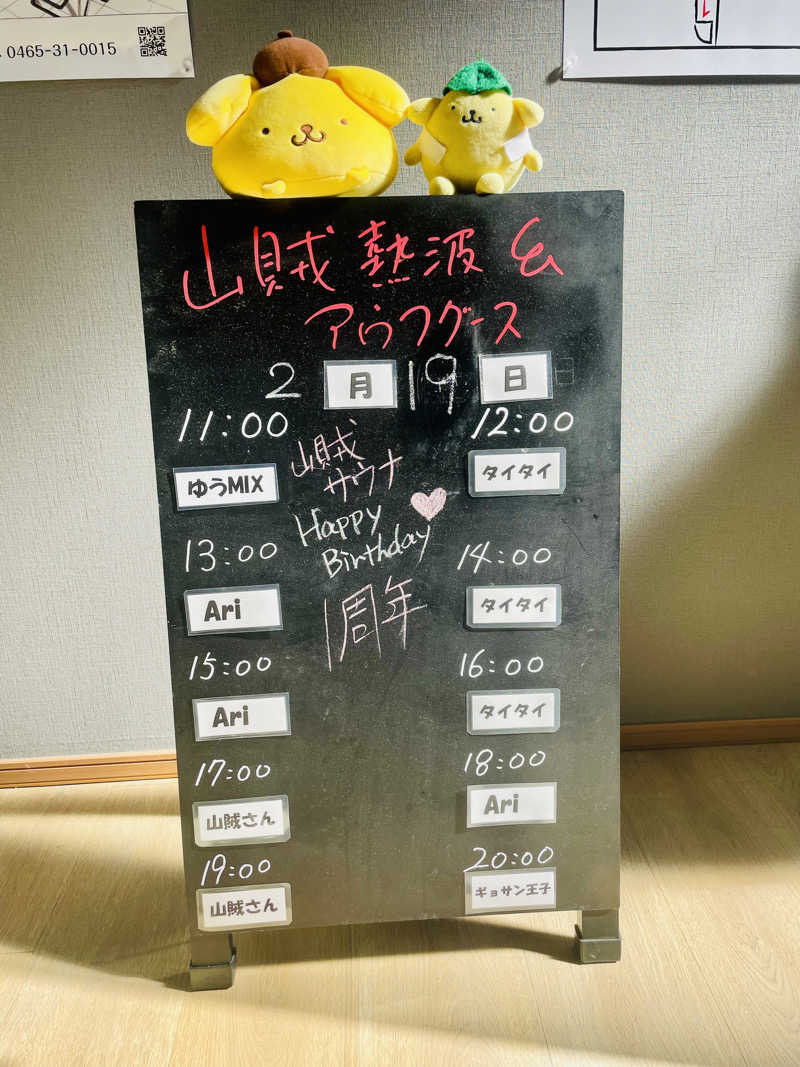 0465-31-0015
山賊 熱波 &
アウフグース
2 月 19 日
11:00
12:00
ゆうMIX
タイタイ
山賊
サウナ
Happy
Birthday
1周年
13:00
14:00
Ari
タイタイ
15:00
16:00
Ari
タイタイ
17:00
18:00
山賊さん
Ari
19:00
20:00
山賊さん
ギョサン王子